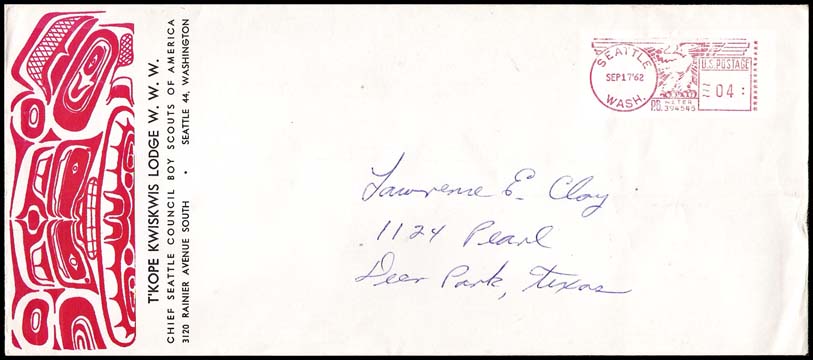 T'KOPE KWISKWIS LODGE W. W. W.
CHIEF SEATTLE COUNCIL BOY SCOUTS OF AMERICA
3120 RAINIER AVENUE SOUTH • SEATTLE 44, WASHINGTON
SEATTLE
SEP 17 '62
WASH.
U.S. POSTAGE
04
P.B. METER
394545
Lawrence E. Cloy
1124 Pearl
Deer Park, Texas